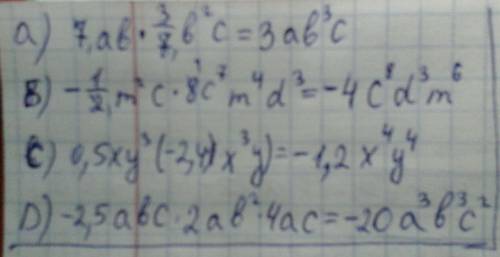 a) 7ab · 3/7 b²c = 3ab³c
B) -1/2 m²c · 8c⁷m⁴d³ = -4c⁸d³m⁶
C) 0,5xy³(-2,4)x³y) = -1,2x⁴y⁴
D) -2,5abc · 2ab² · 4ac = -20a³b³c²